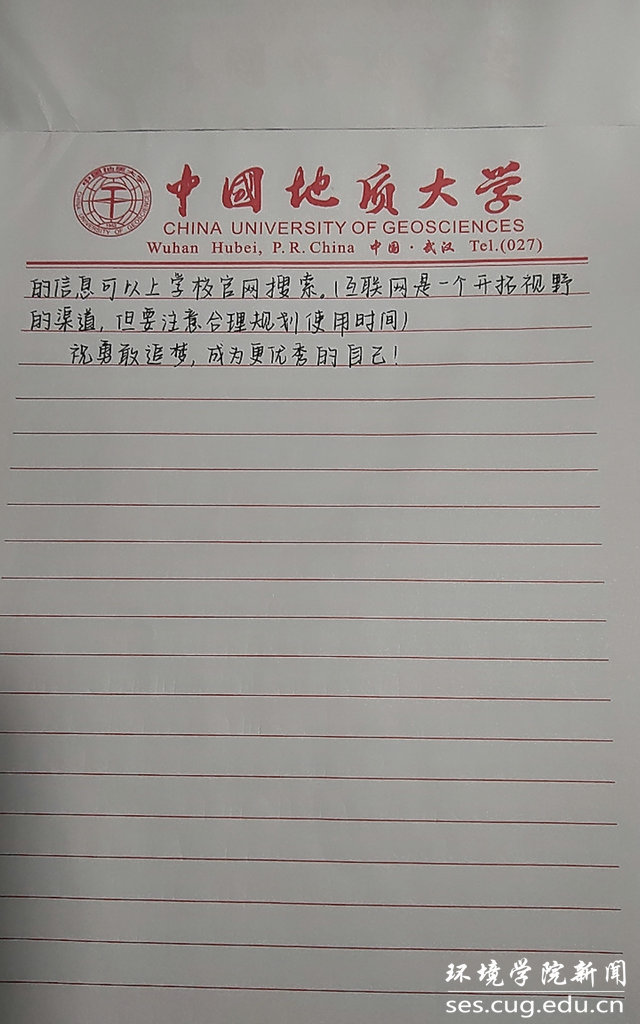 中國地质大学
CHINA UNIVERSITY OF GEOSCIENCES
Wuhan Hubei, P.R.China 中国·武汉 Tel.(027)
的信息可以上学校官网搜索。(互联网是一个开拓视野
的渠道,但要注意合理规划使用时间)
祝勇敢追梦,成为更优秀的自己!
环境学院新闻
ses.cug.edu.cn